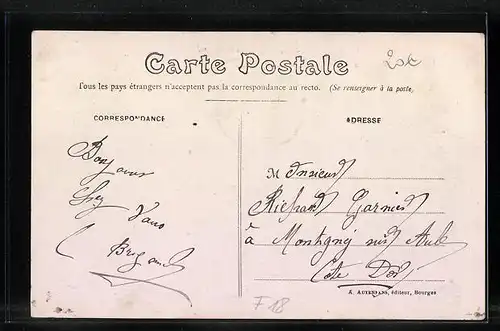 Carte Postale
Tous les pays étrangers n'acceptent pas la correspondance au recto. (Se renseigner à la poste.)
CORRESPONDANCE
ADRESSE
Bonjour
chez
Vous
M onsieur
Garnier
à Montigny sur Aube
Côte Dor
A. AUXENFANS, éditeur, Bourges
F18